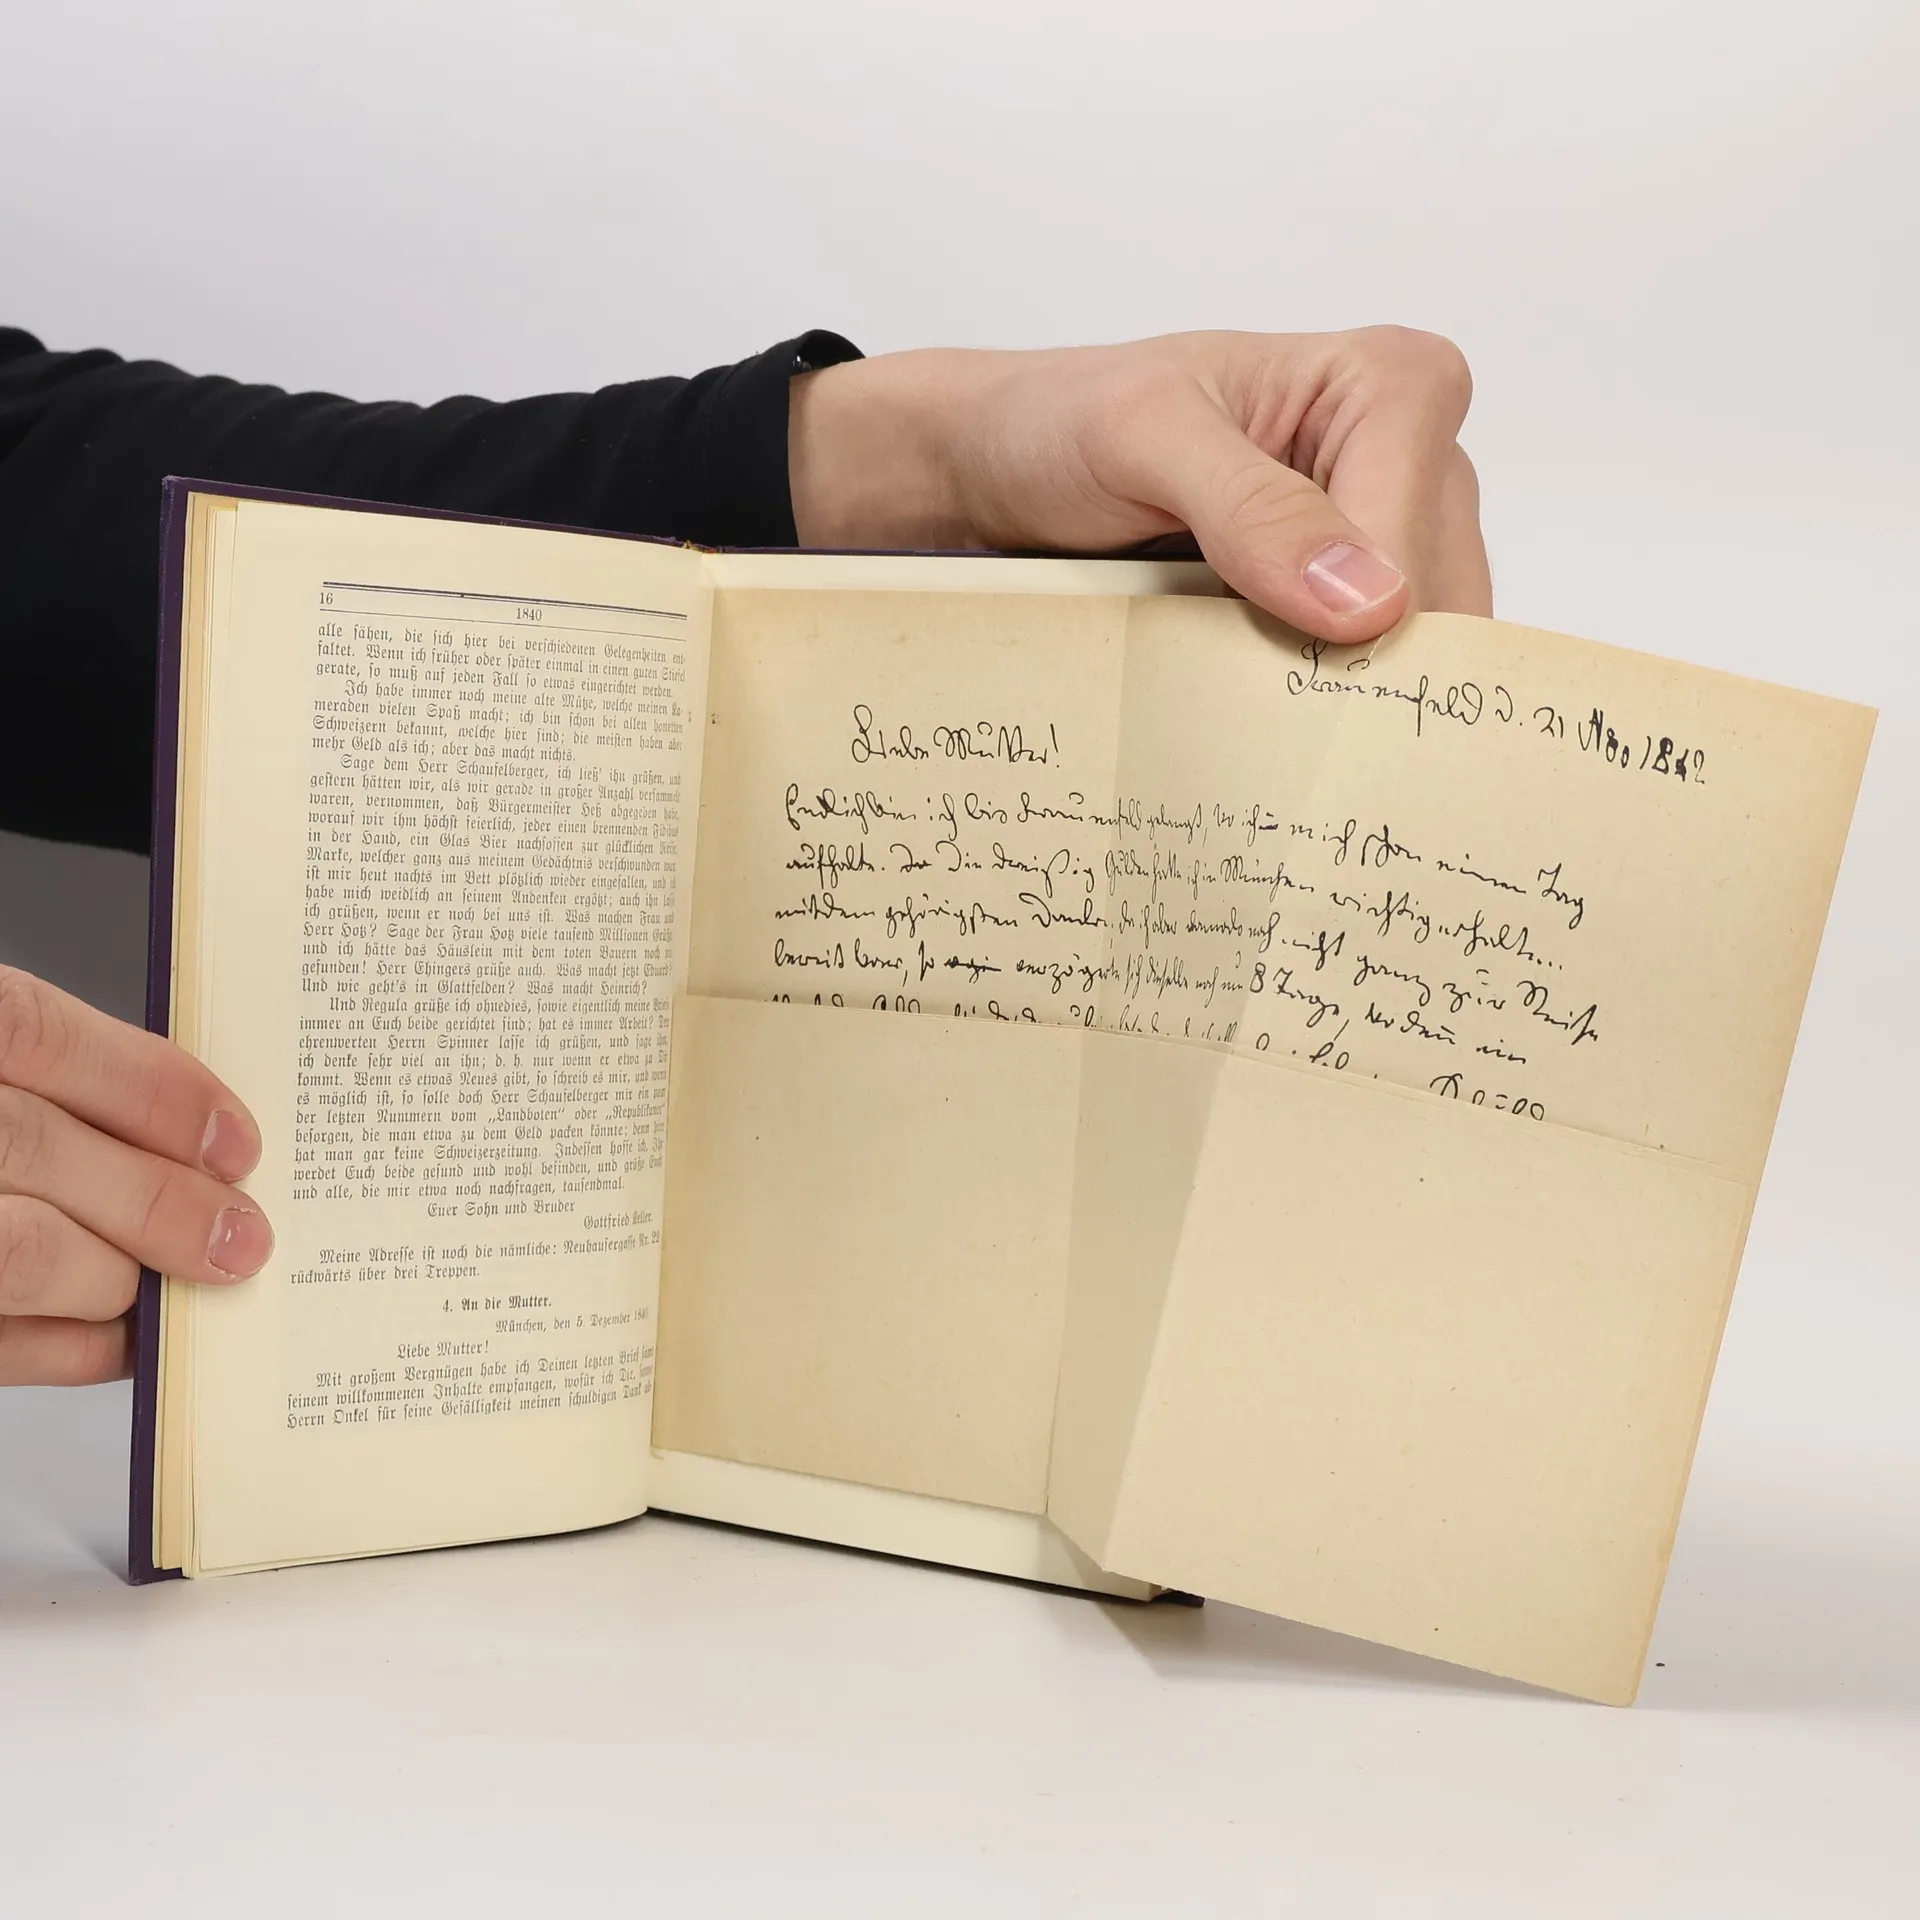 16
1840
alle sähen, die sich hier bei verschiedenen Gelegenheiten ent-
faltet. Wenn ich früher oder später einmal in einen guten Stiefel
gerate, so muß auf jeden Fall so etwas eingerichtet werden.
Ich habe immer noch meine alte Mütze, welche meinen Ka-
meraden vielen Spaß macht; ich bin schon bei allen honetten
Schweizern bekannt, welche hier sind; die meisten haben aber
mehr Geld als ich; aber das macht nichts.
Sage dem Herr Schaufelberger, ich ließ' ihn grüßen, und
gestern hätten wir, als wir gerade in großer Anzahl versammelt
waren, vernommen, daß Bürgermeister Heß abgegeben habe,
worauf wir ihm höchst feierlich, jeder einen brennenden Fidibus
in der Hand, ein Glas Bier nachsoffen zur glücklichen Reise.
Marke, welcher ganz aus meinem Gedächtnis verschwunden war,
ist mir heut nachts im Bett plötzlich wieder eingefallen, und ich
habe mich weidlich an seinem Andenken ergötzt; auch ihn lass
ich grüßen, wenn er noch bei uns ist. Was machen Frau und
Herr Hotz? Sage der Frau Hotz viele tausend Millionen Grüße
und ich hätte das Häuslein mit dem toten Bauern noch
gefunden! Herr Ehingers grüße auch. Was macht jetzt Eduard?
Und wie geht's in Glattfelden? Was macht Heinrich?
Und Regula grüße ich ohnedies, sowie eigentlich meine Briefe
immer an Euch beide gerichtet sind; hat es immer Arbeit? Den
ehrenwerten Herrn Spinner lasse ich grüßen, und sage ihm,
ich denke sehr viel an ihn; d. h. nur wenn er etwa zu Dir
kommt. Wenn es etwas Neues gibt, so schreib es mir, und wenn
es möglich ist, so solle doch Herr Schaufelberger mir ein paar
der letzten Nummern vom „Landboten“ oder „Republikaner“
besorgen, die man etwa zu dem Geld packen könnte; denn hier
hat man gar keine Schweizerzeitung. Indessen hoffe ich, Ihr
werdet Euch beide gesund und wohl befinden, und grüße Euch
und alle, die mir etwa noch nachfragen, tausendmal.
Euer Sohn und Bruder
Gottfried Keller.
Meine Adresse ist noch die nämliche: Neuhausergasse Nr. 22
rückwärts über drei Treppen.
4. An die Mutter.
München, den 5. Dezember 1840
Liebe Mutter!
Mit großem Vergnügen habe ich Deinen letzten Brief samt
seinem willkommenen Inhalte empfangen, wofür ich Dir, sowie
Herrn Onkel für seine Gefälligkeit meinen schuldigen Dank ab-
Frauenfeld d. 21 Nov 1842
Liebe Mutter!
Endlich bin ich bis Frauenfeld gelangt, wo ich mich schon einen Tag
aufhalte. Die dreißig Gulden hatte ich in München richtig erhalten
mit dem gehörigsten Danke, da ich aber damals noch nicht ganz zur Reise
bereit war, so verzögerte sich dieselbe noch um 8 Tage, wo denn ein